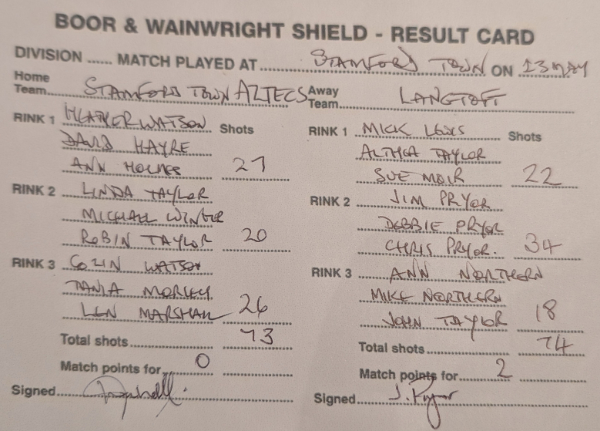 BOOR & WAINWRIGHT SHIELD - RESULT CARD
DIVISION ...... MATCH PLAYED AT STAMFORD TOWN ON 13 MAY
Home Team STAMFORD TOWN AZTECS Away Team LANGTOFT
RINK 1 HEATHER WATSON Shots
DAVID HAYRE
ANN HOLMES 27
RINK 2 LINDA TAYLOR
MICHAEL WINTER
ROBIN TAYLOR 20
RINK 3 COLIN WATSON
TANIA MORLEY
LEN MARSHALL 26
Total shots 73
Match points for 0
Signed
RINK 1 MICK LEWIS Shots
ALTHEA TAYLOR
SUE MOIR 22
RINK 2 JIM PRYER
DEBBIE PRYER
CHRIS PRYER. 34
RINK 3 ANN NORTHERN
MIKE NORTHERN
JOHN TAYLOR 18
Total shots 74
Match points for 2
Signed J. Pryer